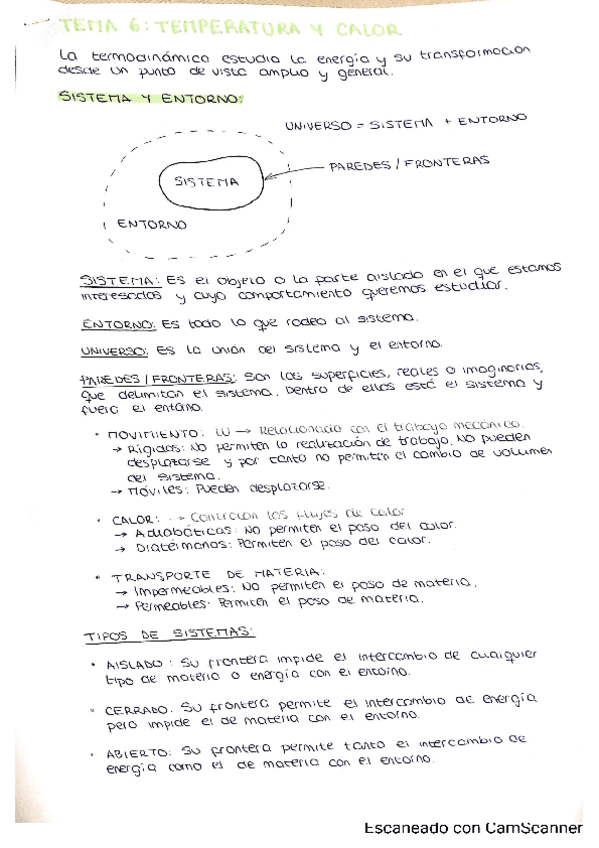 TEMA 6: TEMPERATURA Y CALOR
La termodinámica estudia la energía y su transformación
desde un punto de vista amplio y general.
SISTEMA Y ENTORNO:
UNIVERSO = SISTEMA + ENTORNO
PAREDES / FRONTERAS
SISTEMA
ENTORNO
SISTEMA: Es el objeto o la parte aislada en el que estamos
interesados y cuyo comportamiento queremos estudiar.
ENTORNO: Es todo lo que rodea al sistema.
UNIVERSO: Es la unión del sistema y el entorno.
PAREDES / FRONTERAS: Son las superficies, reales o imaginarias,
que delimitan el sistema. Dentro de ellas está el sistema y
fuera el entorno.
· MOVIMIENTO: W → Relacionado con el trabajo mecánico.
→ Rígidas: No permiten la realización de trabajo. No pueden
desplazarse y por tanto no permiten el cambio de volumen
del sistema.
→ Móviles: Pueden desplazarse.
· CALOR: → Controlan los flujos de calor
→ Adiabáticas: No permiten el paso del calor.
→ Diatérmanas: Permiten el paso del calor.
· TRANSPORTE DE MATERIA:
→ Impermeables: No permiten el paso de materia.
→ Permeables: Permiten el paso de materia.
TIPOS DE SISTEMAS:
· AISLADO: Su frontera impide el intercambio de cualquier
tipo de materia o energía con el entorno.
· CERRADO: Su frontera permite el intercambio de energía
pero impide el de materia con el entorno.
· ABIERTO: Su frontera permite tanto el intercambio de
energía como el de materia con el entorno.
Escaneado con CamScanner